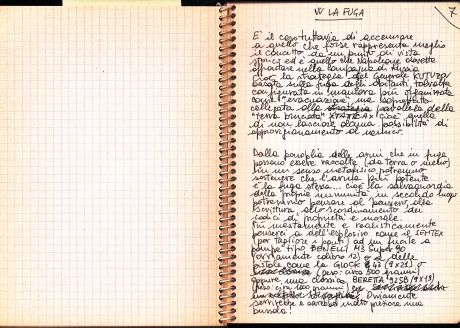 W LA FUGA
7
E' il caso tuttavia di accennare
a quello che forse rappresenta meglio
il concetto da un punto di vista
storico ed è quello che Napoleone dovette
affrontare nella campagna di Russia
Cioè la strategia del Generale KUTUZOV
basata sulla fuga degli abitanti, talvolta
configurata in maniera più organizzata
come "evacuazione", ma soprattutto
collegata alla strategia parallela della
"terra bruciata" cioè quella
di non lasciare alcuna possibilità di
approvvigionamento al nemico.
Dalla panoplia delle armi che in fuga
possono essere raccolte (da terra o meglio)
in un senso metaforico potremmo
sostenere che l'arma più potente
è la fuga stessa... cioè la salvaguardia
della propria immunità in secondo luogo
potremmo pensare al pensiero, alla
scrittura, allo scardinamento dei
codici di proprietà e morale.
Più mestamente e realisticamente
penserei a dell'esplosivo come il SEMTEX
(per tagliare i ponti) ad un fucile a
pompa tipo BENELLI M3 Super 90
(ovviamente calibro 12) e a delle
pistole come la GLOCK (9x21) o
(peso: circa 500 grammi)
oppure una classica BERETTA 92SB (9x19)
(peso: circa 1000 grammi)
Ovviamente
servirebbe e sarebbe molto preziosa una
bussola!